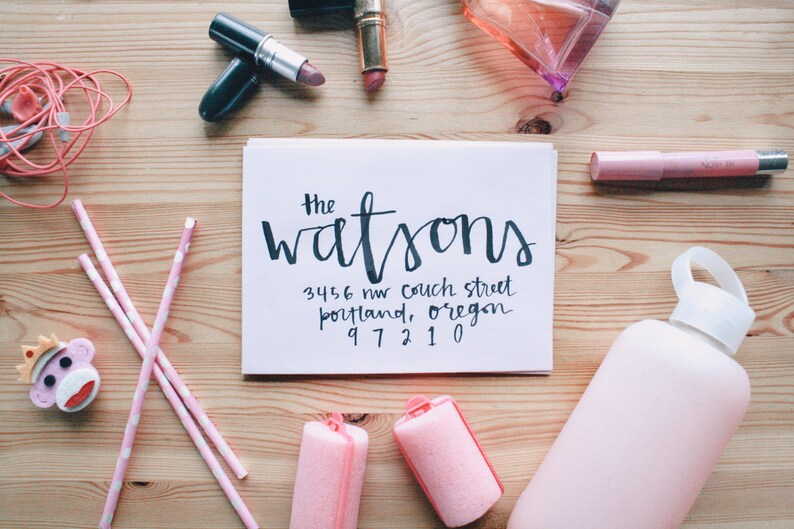 the
watsons
3456 nw couch street
portland, oregon
97210